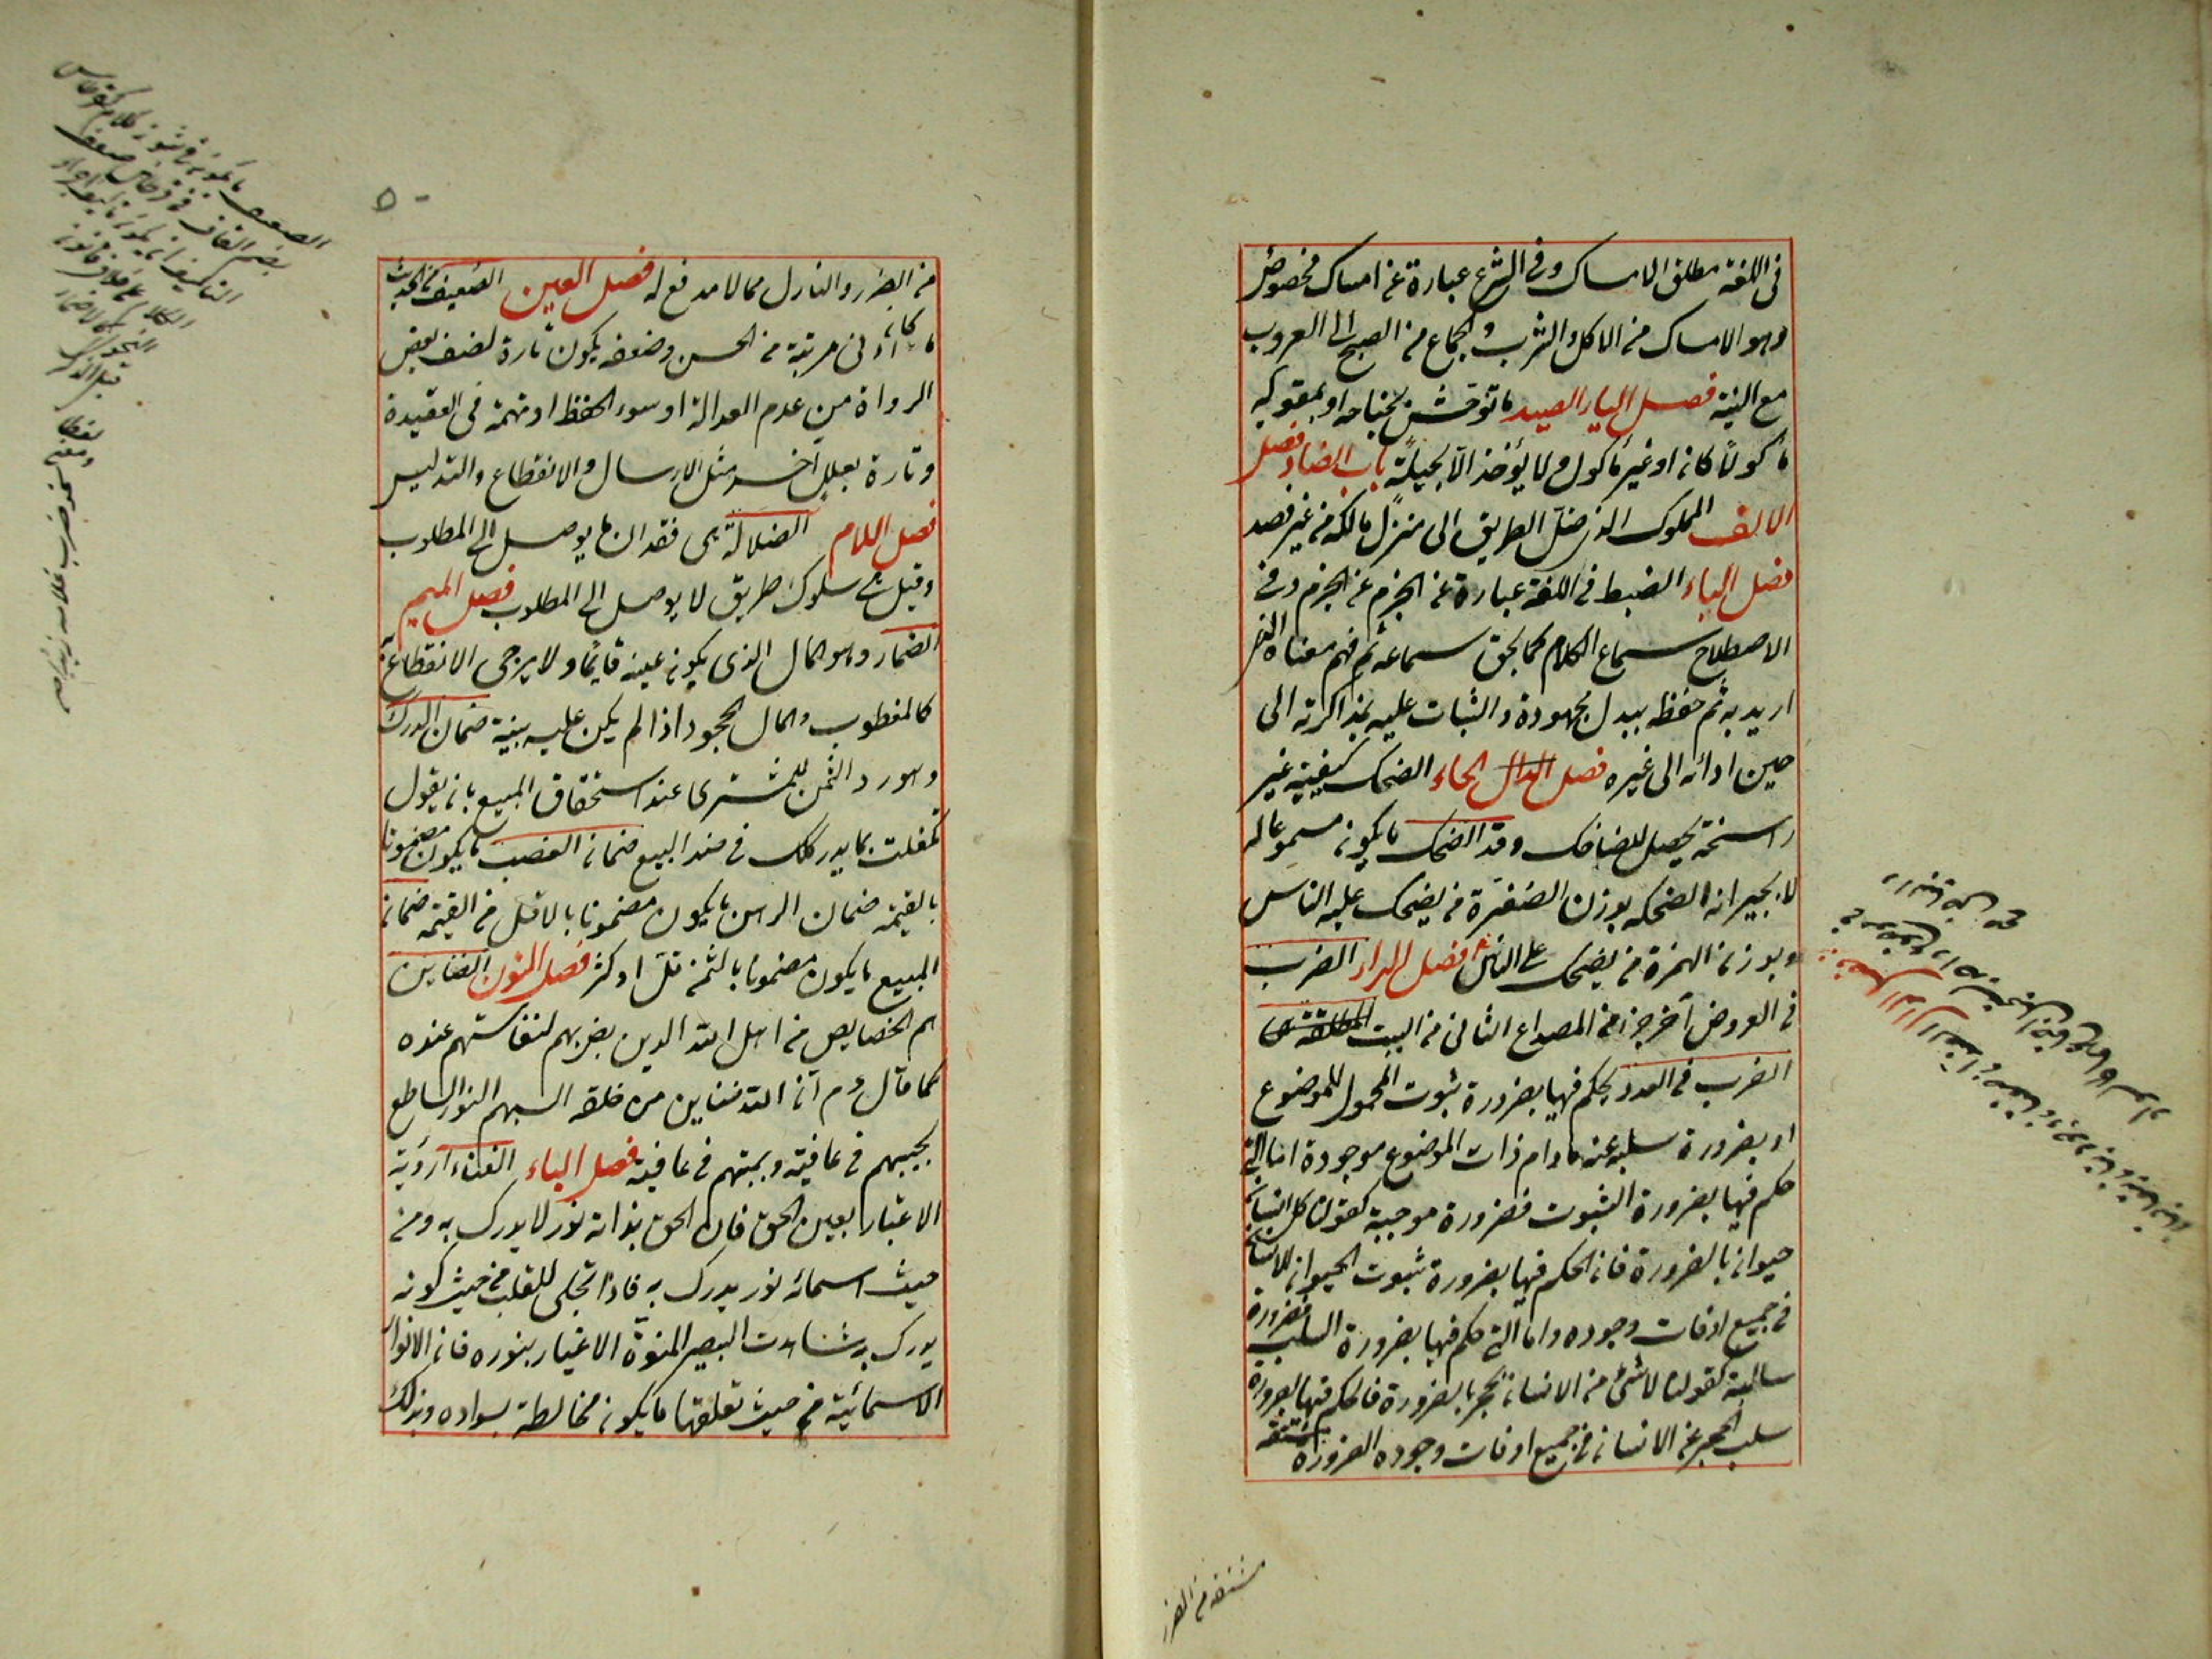 فى اللغة مطلق الامساك وفى الشرع عبارة عن امساك مخصوص
وهو الامساك من الاكل والشرب والجماع من الصبح الى الغروب
مع النية فصل الياء الصيد ما توحش بجناحه او بقوائمه
مأكولا كان او غير مأكول ولا يؤخذ الا بحيلة باب الضاد فصل
الالف المملوك الذى ضل الطريق الى منزل مالكه من غير قصد
فصل الباء الضبط فى اللغة عبارة عن الجزم عن الجزم وفى
الاصطلاح سماع الكلام كما يحق سماعه ثم فهم معناه الذى
اريد به ثم حفظه ببذل مجهوده والثبات عليه بمذاكرته الى
حين ادائه الى غيره فصل الدال الحاء الضحك كيفية غير
راسخة يحصل للضاحك وحد الضحك ما يكون مسموعا له
لا لجيرانه الضحكة بوزن الصفرة من يضحك عليه الناس
وبوزن الهمزة من يضحك على الناس فصل الراء الضرب
فى العروض آخر جزء من المصراع الثانى من البيت المطلقة هى
الضرب فى العدد يحكم فيها بضرورة ثبوت المحمول للموضوع
او بضرورة سلبه عنه مادام ذات الموضوع موجودة اما التى
حكم فيها بضرورة الثبوت فضرورة موجبة كقولنا كل انسان
حيوان بالضرورة فان الحكم فيها بضرورة ثبوت الحيوان للانسان
فى جميع اوقات وجوده واما التى حكم فيها بضرورة السلب فضرورة
سالبة كقولنا لا شئ من الانسان بحجر بالضرورة فالحكم فيها بضرورة
سلب الحجر عن الانسان فى جميع اوقات وجوده الضرورة مشتقة
مشتقة من الضرر
٥٠
من الضرر والنازل مما لا مدفع له فصل العين الضعيف من الحديث
ما كان ادنى مرتبة من الحسن وضعفه يكون تارة لضعف بعض
الرواة من عدم العدالة او سوء الحفظ او تهمة فى العقيدة
وتارة بعلل أخر مثل الارسال والانقطاع والتدليس
فصل اللام الضلالة هى فقدان ما يوصل الى المطلوب
وقيل هى سلوك طريق لا يوصل الى المطلوب فصل الميم
الضمار وهو المال الذى يكون عينه قائما ولا يرجى الانتفاع به
كالمغصوب والمال المجحود اذا لم يكن عليه بينة ضمان الدرك
وهو رد الثمن للمشترى عند استحقاق المبيع بان يقول
تكفلت بما يدركك فى هذا البيع ضمان الغصب ما يكون مضمونا
بالقيمة ضمان الرهن ما يكون مضمونا بالاقل من القيمة ضمان
المبيع ما يكون مضمونا بالثمن قل او كثر فصل النون الضناين
هم الخصايص من اهل الله الذين يضن بهم لنفاستهم عنده
كما قال عم ان لله ضناين من خلقه البسهم النور الساطع
يحييهم فى عافية ويميتهم فى عافية فصل الياء الضياء رؤية
الاغيار بعين الحق فان الحق بذاته نور لا يدرك به ومن
حيث اسمائه نور يدرك به فاذا تجلى للقلب من حيث كونه
يدرك به شاهدت البصيرة المنورة الاغيار بنوره فان الانوار
الاسمائية من حيث تعلقها ما يكون مخالطة بسواده وبذلك